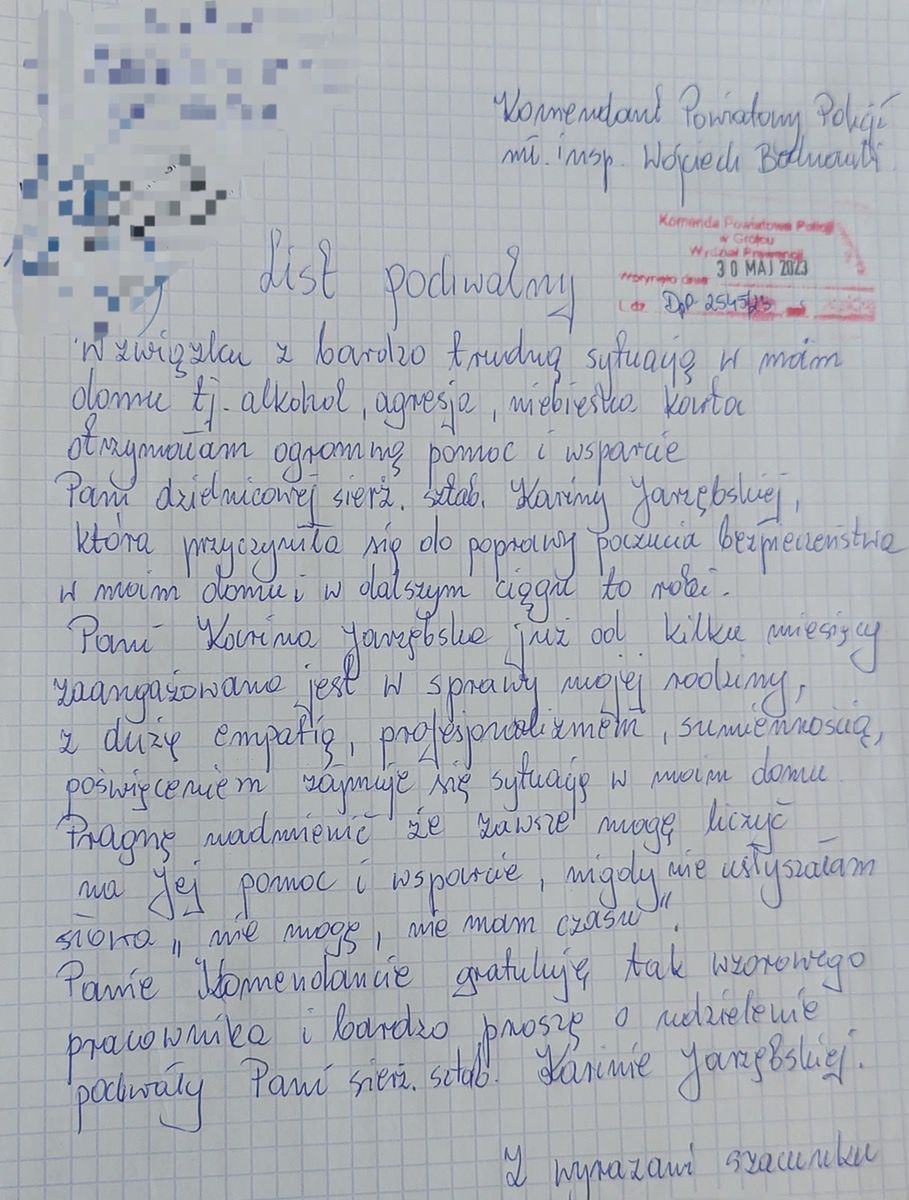 Komendant Powiatowy Policji
mł. insp. Wojciech
Komenda Powiatowa Policji
w Grójcu
Wydział Prewencji
Wpłynęło dnia 30 MAJ 2023
L.dz. DpP 2545/23
List pochwalny
W związku z bardzo trudną sytuacją w moim
domu tj. alkohol, agresja, niebieska karta
otrzymałam ogromną pomoc i wsparcie
Pani dzielnicowej sierż. sztab. Kariny Jarzębskiej,
która przyczyniła się do poprawy poczucia bezpieczeństwa
w moim domu i w dalszym ciągu to robi.
Pani Karina Jarzębska już od kilku miesięcy
zaangażowana jest w sprawy mojej rodziny,
z dużą empatią, profesjonalizmem, sumiennością,
poświęceniem zajmuje się sytuacją w moim domu.
Pragnę nadmienić że zawsze mogę liczyć
na Jej pomoc i wsparcie, nigdy nie usłyszałam
słowa „nie mogę, nie mam czasu".
Panie Komendancie gratuluję tak wzorowego
pracownika i bardzo proszę o udzielenie
pochwały Pani sierż. sztab. Karinie Jarzębskiej.
Z wyrazami szacunku